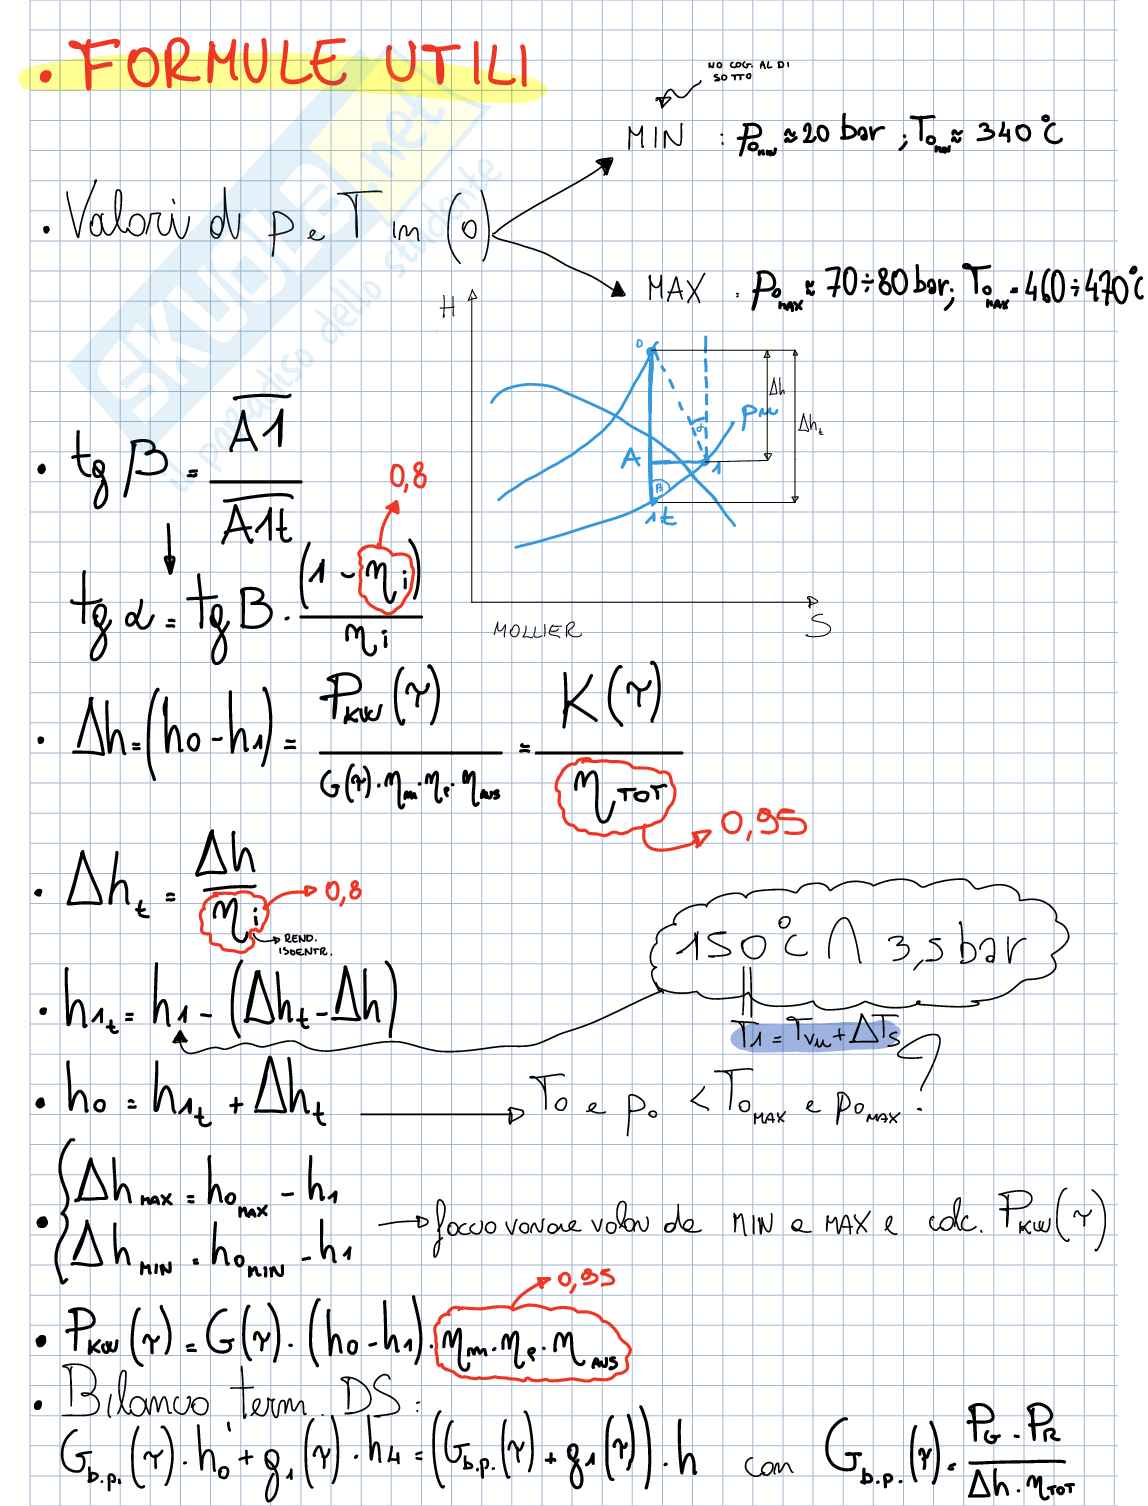 • FORMULE UTILI
NO COG. AL DI
SOTTO
MIN : p₀ₘᵢₙ ≈ 20 bar ; T₀ₘᵢₙ ≈ 340°C
• Valori di p e T in (0)
MAX : p₀ₘₐₓ ≈ 70÷80 bar; T₀ₘₐₓ = 460÷470°C
SKUOLA.net
il paradiso dello studente
H
0
Δh
Δhₜ
α
A
1
β
1t
S
MOLLIER
• tg β = A1 / A1t
0,8
tg α = tg β · (1 - ηi) / ηi
• Δh = (h0 - h1) = PKW(τ) / G(τ)·ηm·ηe·ηAUS = K(τ) / ηTOT
0,95
• Δht = Δh / ηi
0,8
REND.
ISOENTR.
150°C ∩ 3,5 bar
• h1t = h1 - (Δht - Δh)
T1 = Tvu + ΔTs
• h0 = h1t + Δht → T0 e p0 < T0MAX e p0MAX ?
• ΔhMAX = h0MAX - h1
ΔhMIN = h0MIN - h1
→ faccio variare valori da MIN a MAX e calc. PKW(τ)
0,95
• PKW(τ) = G(τ) · (h0 - h1) · ηm · ηe · ηAUS
• Bilancio term. DS:
Gb.p.(τ) · h0' + g1(τ) · h4 = (Gb.p.(τ) + g1(τ)) · h con Gb.p.(τ) = PG · PR / Δh · ηTOT